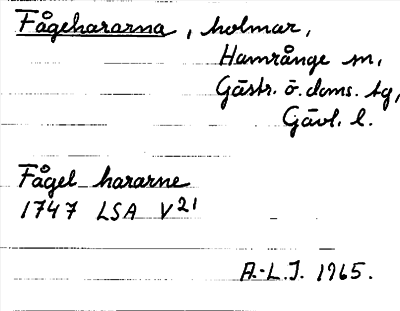 Fågehararna, holmar,
Hamrånge sn,
Gästr. ö. doms. tg,
Gävl. l.
Fågel hararne
1747 LSA V21
A.-L.J. 1965.